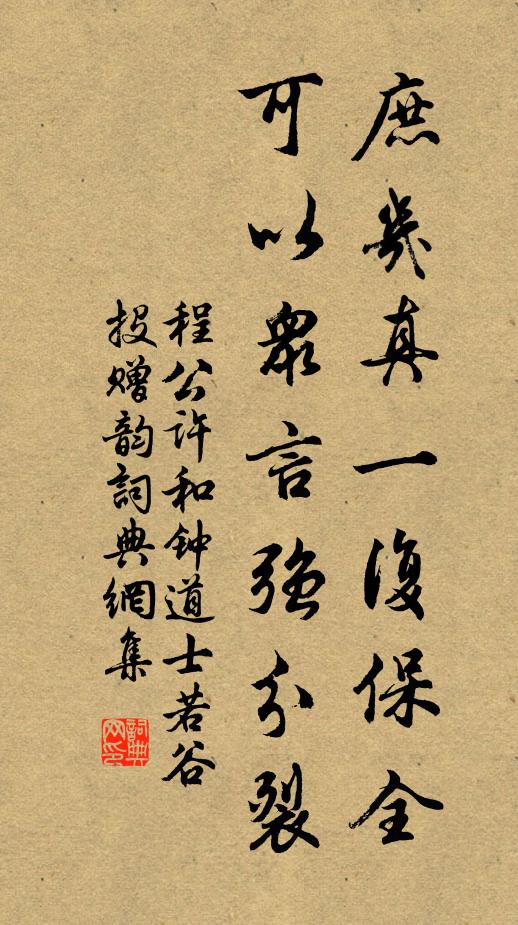 庶幾真一復保全
可以眾言強分裂
程公许和钟道士若谷
投赠韵詞典網集
詞典網印